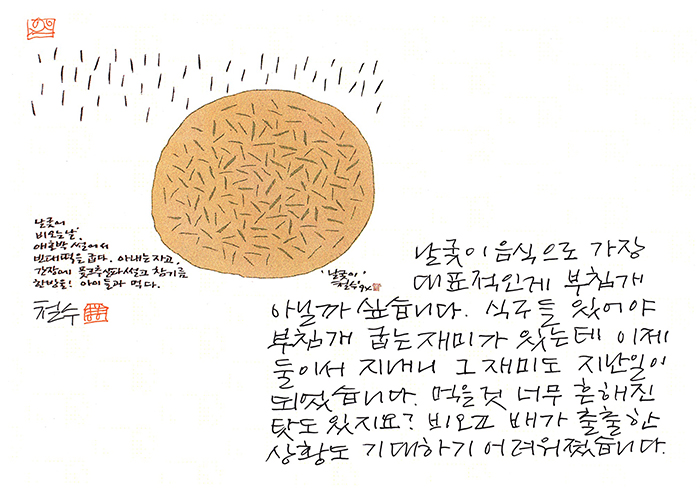 날궂이
비오는날.
애호박 썰어서
빈대떡을 굽다. 아내는 자고,
간장에 풋고추 실파 썰고 참기름
한방울! 아이들과 먹다.
'날궂이'
철수 94
철수
날궂이 음식으로 가장
대표적인게 부침개
아닐까 싶습니다. 식구들 있어야
부침개 굽는 재미가 있는데 이제
둘이서 지내니 그 재미도 지난일이
되었습니다. 먹을것 너무 흔해진
탓도 있지요? 비오고 배가 출출한
상황도 기대하기 어려워졌습니다.